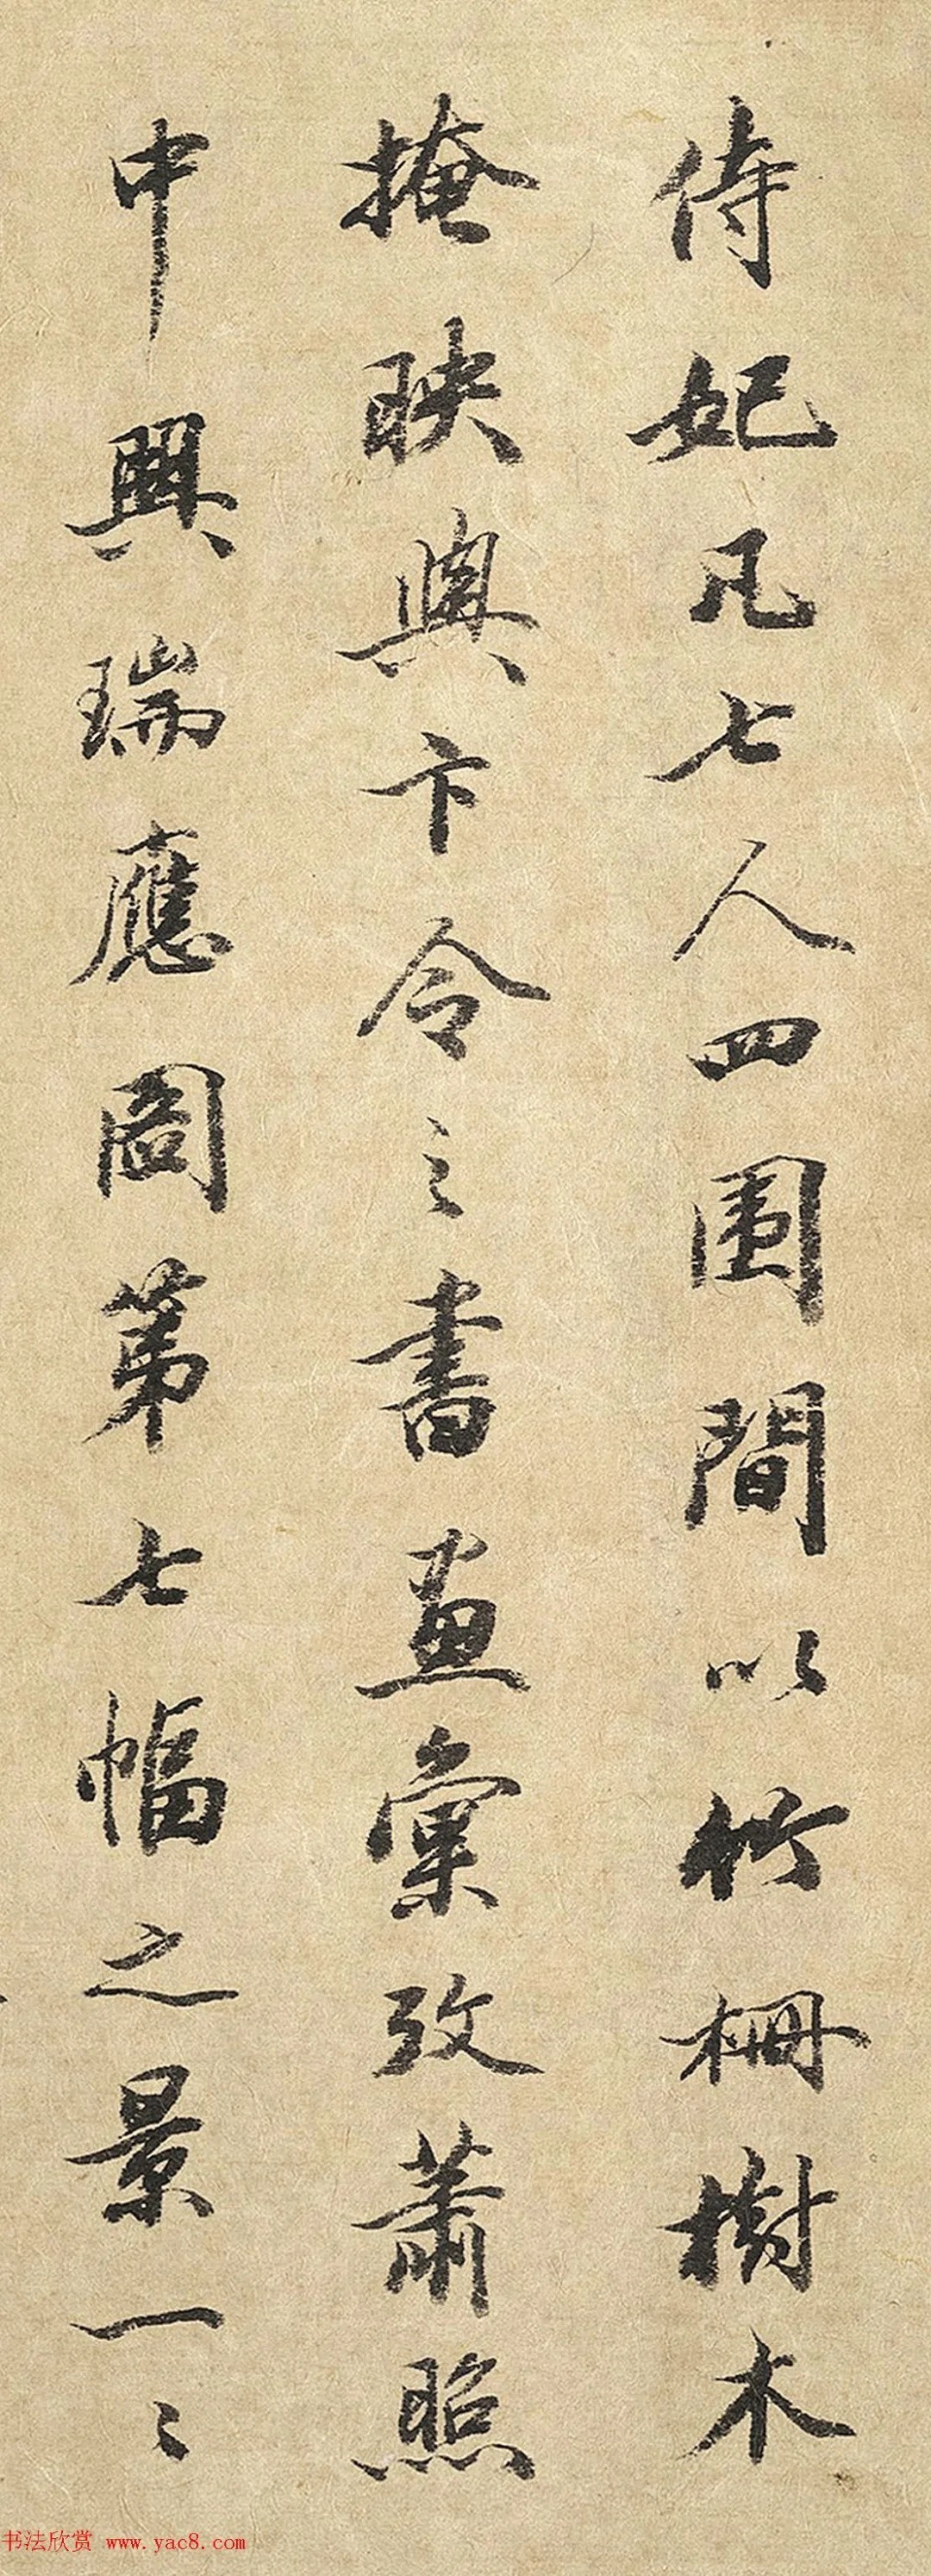 侍妃凡七人四圍間以竹柵樹木
掩映與卞令之書畫彙攷蕭照
中興瑞應圖第七幅之景一〻
书法欣赏 www.yac8.com